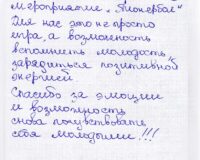 Мероприятие „Пионербол"
Для нас это не просто
игра, а возможность
вспомнить молодость,
зарядиться позитивной
энергией
Спасибо за эмоции
и возможность
снова почувствовать
себя молодыми!!!